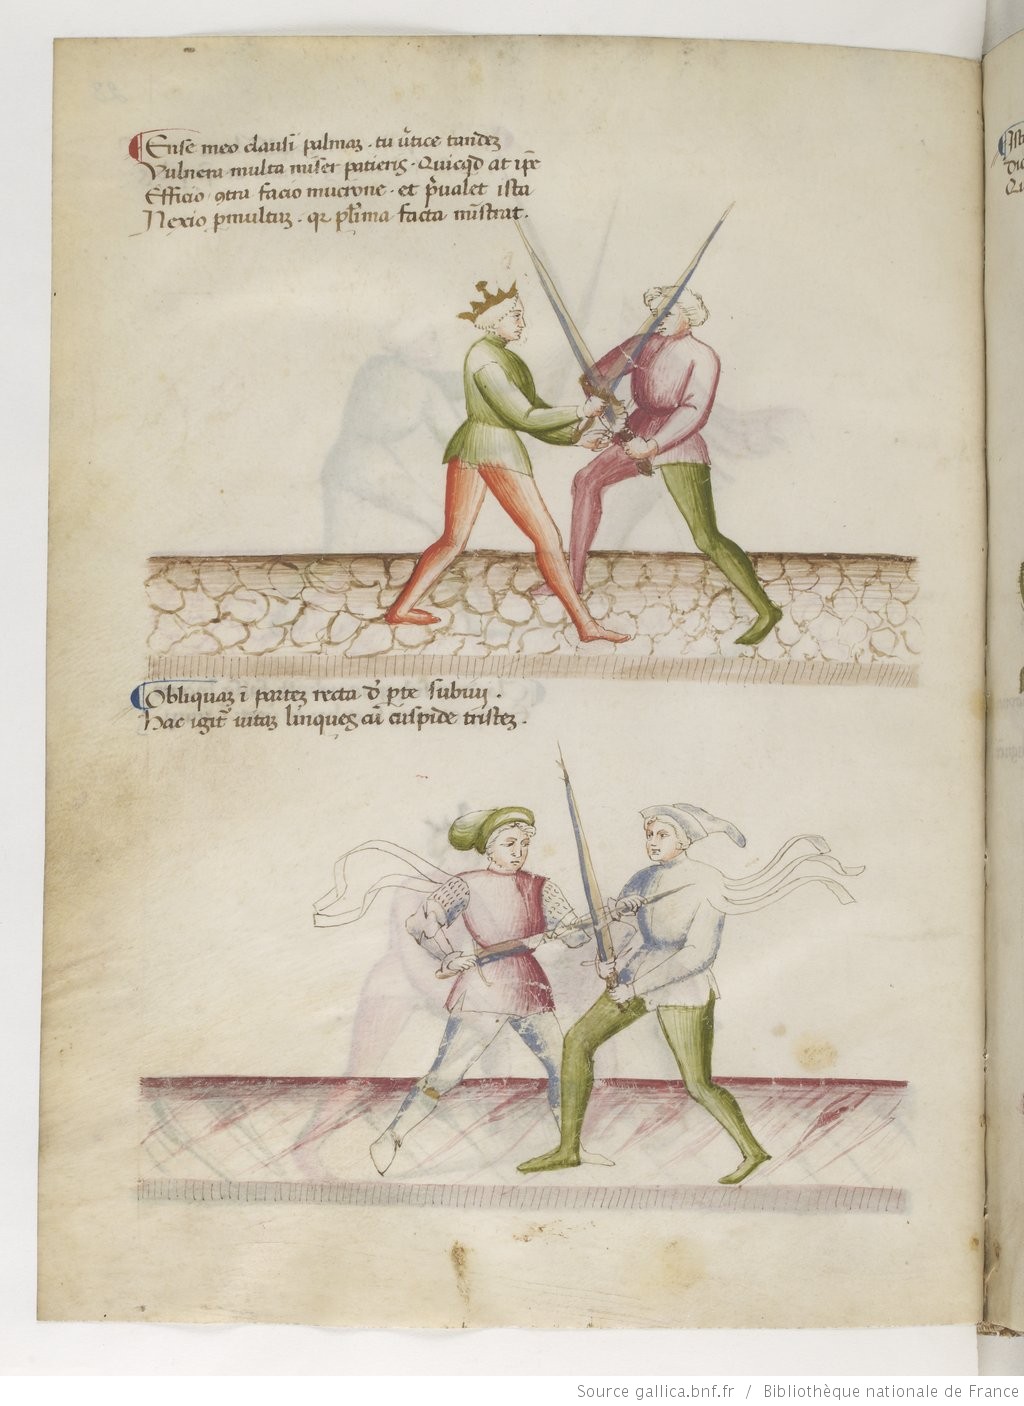 Ense meo clausi palmaꝫ . tu v̓tice tandeꝫ
Vulnera multa miser patieris . Quicq̄d at ip̄e
Efficio ꝯtra facio mucrone . et p̄ualet ista
Nexio ꝑmultuꝫ . qꝛ pl̓ima facta mi̅strat .
Obliquaꝫ ī parteꝫ recta d̓ ꝑte subiuij .
Hac igit̉ uitaꝫ linques cū cuspide tristeꝫ .
Source gallica.bnf.fr / Bibliothèque nationale de France